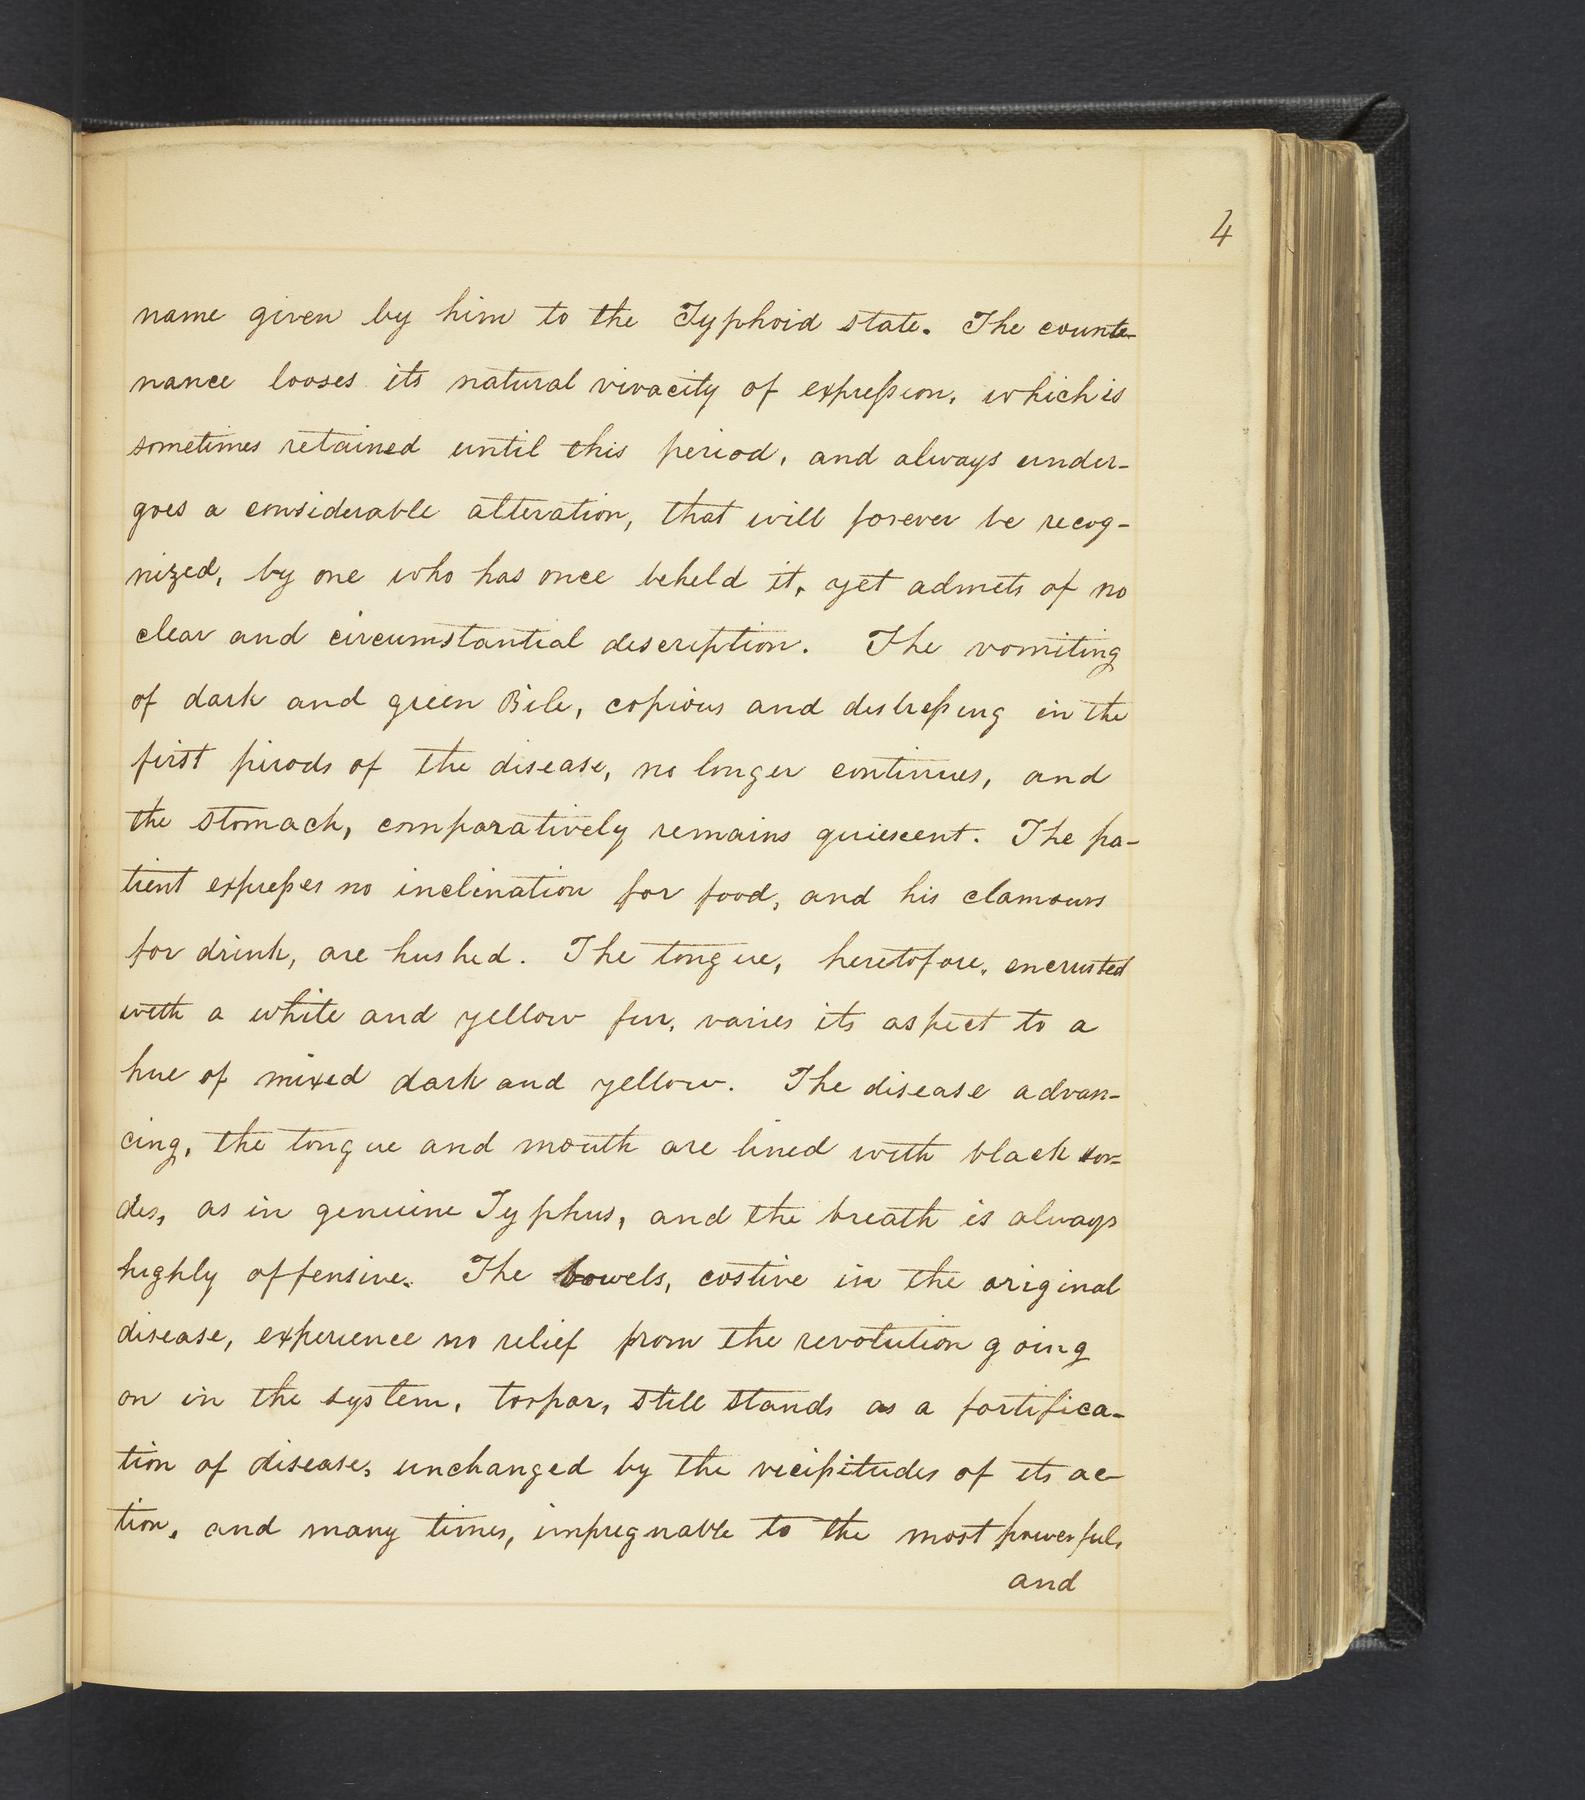 4
name given by him to the Typhoid state. The counte-
nance looses its natural vivacity of expreſsion, which is
sometimes retained until this period, and always under-
goes a considerable alteration, that will forever be recog-
nized, by one who has once beheld it, yet admets of no
clear and circumstantial description. The vomiting
of dark and green Bile, copious and distreſsing in the
first pirods of the disease, no longer continues, and
the stomach, comparatively remains quiescent. The pa-
tient expreſses no inclination for food, and his clamours
for drink, are hushed. The tongue, heretofore, encrusted
with a white and yellow fur, varies its aspect to a
hue of mixed dark and yellow. The disease advan-
cing, the tongue and mouth are lined with black sor=
des, as in genuine Typhus, and the breath is always
highly offensive. The bowels, costive in the original
disease, experience no relief from the revolution going
on in the system, torpor, still stands as a fortifica-
tion of disease, unchanged by the viciſsitudes of its ac-
tion, and many times, impregnable to the most powerful,
and